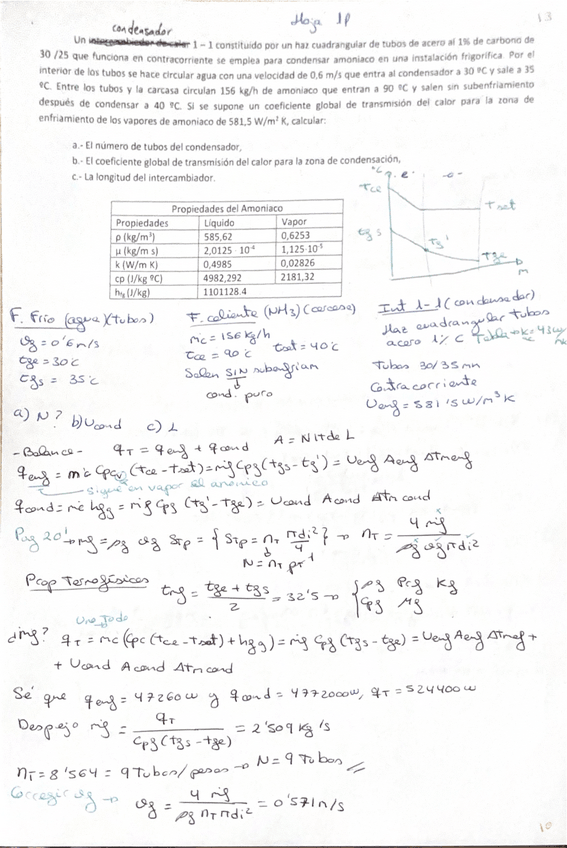 Hoja 1P
13
condensador
Un intercambiador de calor 1 – 1 constituido por un haz cuadrangular de tubos de acero al 1% de carbono de
30 /25 que funciona en contracorriente se emplea para condensar amoniaco en una instalación frigorífica. Por el
interior de los tubos se hace circular agua con una velocidad de 0,6 m/s que entra al condensador a 30 ºC y sale a 35
ºC. Entre los tubos y la carcasa circulan 156 kg/h de amoniaco que entran a 90 ºC y salen sin subenfriamiento
después de condensar a 40 ºC. Si se supone un coeficiente global de transmisión del calor para la zona de
enfriamiento de los vapores de amoniaco de 581,5 W/m² K, calcular:
a.- El número de tubos del condensador,
b.- El coeficiente global de transmisión del calor para la zona de condensación,
c.- La longitud del intercambiador.
ºC
Tce
Tsat
tgs
Tg'
Tge
m
Propiedades del Amoniaco
Propiedades Líquido Vapor
ρ (kg/m³) 585,62 0,6253
μ (kg/m s) 2,0125 10⁻⁴ 1,125·10⁻⁵
k (W/m K) 0,4985 0,02826
cp (J/kg ºC) 4982,292 2181,32
hfg (J/kg) 1101128.4
F. Frío (agua)(tubos)
vg = 0'6 m/s
tge = 30ºC
tgs = 35ºC
F. caliente (NH3) (carcasa)
mc = 156 kg/h
tce = 90ºC tsat = 40ºC
Salen SIN subenfriam
cond. puro
Int 1-1 (condensador)
Haz cuadrangular tubos
acero 1% C Tabla → k = 43 W/mk
Tubos 30/35 mm
Contracorriente
Uenf = 581'5 W/m²K
a) N? b) Ucond c) L
- Balance - qT = qenf + qcond A = Nπ de L
qenf = mc Cpcv (tce - tsat) = mg Cpg (tgs - tg') = Uenf Aenf Δtmenf
Sigue en vapor el amoníaco
qcond = mc hfg = mg Cpg (tg' - tge) = Ucond Acond Δtm cond
Pag 20' → mg = ρg vg STP = {STP = nT πdi²/4} → nT = 4 mg / ρg vg π di²
N = nT pT
Prop Termofísicas tmg = tge + tgs / 2 = 32'5 → { ρg Prg Kg
Cpg μg
Uno todo
¿mg? qT = mc (Cpc (tce - tsat) + hfg) = mg Cpg (tgs - tge) = Uenf Aenf Δtmenf +
+ Ucond Acond Δtm cond
Sé que qenf = 47260 w y qcond = 477200 w, qT = 524400 w
Despejo mg = qT / Cpg (tgs - tge) = 2'509 kg/s
nT = 8'564 = 9 Tubos/pasos → N = 9 Tubos
Corregir vg → vg = 4 mg / ρg nT π di² = 0'571 m/s
10